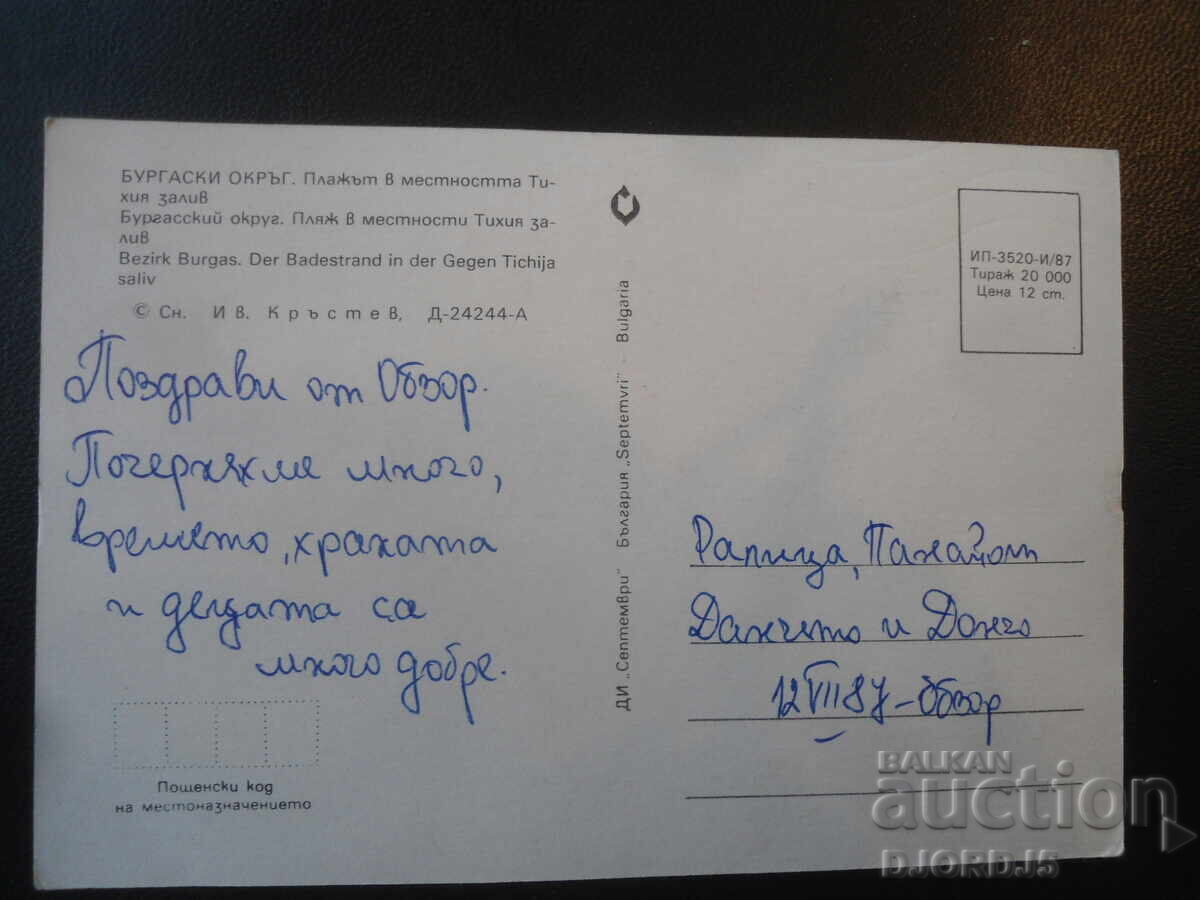 БУРГАСКИ ОКРЪГ. Плажът в местността Ти-
хия залив
Бургасский округ. Пляж в местности Тихия за-
лив
Bezirk Burgas. Der Badestrand in der Gegen Tichija
saliv
© Сн. Ив. Кръстев, Д-24244-А
Поздрави от Обзор.
Почерняхме много,
времето, храната
и децата са
много добре.
Пощенски код
на местоназначението
ДИ „Септември" България „Septemvri" - Bulgaria
ИП-3520-И/87
Тираж 20 000
Цена 12 ст.
Рапица, Панайот
Данчето и Дончо
12 VIII 87 - Обзор
BALKAN
auction
DJORDJ5